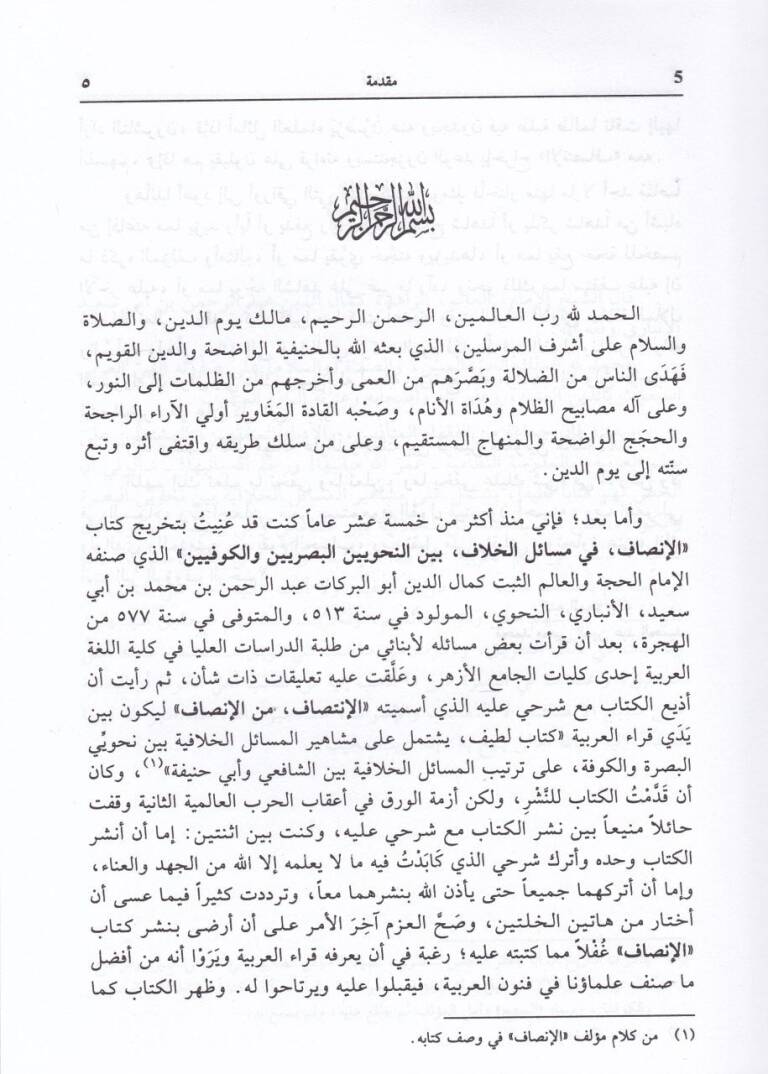 5 مقدمة ٥
بسم الله الرحمن الرحيم
الحمد لله رب العالمين، الرحمن الرحيم، مالك يوم الدين، والصلاة
والسلام على أشرف المرسلين، الذي بعثه الله بالحنيفية الواضحة والدين القويم،
فَهَدَى الناس من الضلالة وبَصَّرَهم من العمى وأخرجهم من الظلمات إلى النور،
وعلى آله مصابيح الظلام وهُدَاة الأنام، وصَحْبه القادة المَغَاوير أولي الآراء الراجحة
والحجَج الواضحة والمنهاج المستقيم، وعلى من سلك طريقه واقتفى أثره وتبع
سنّته إلى يوم الدين.
وأما بعد؛ فإني منذ أكثر من خمسة عشر عاماً كنت قد عَنِيتُ بتخريج كتاب
«الإنصاف، في مسائل الخلاف، بين النحويين البصريين والكوفيين» الذي صنفه
الإمام الحجة والعالم الثبت كمال الدين أبو البركات عبد الرحمن بن محمد بن أبي
سعيد، الأنباري، النحوي، المولود في سنة ٥١٣، والمتوفى في سنة ٥٧٧ من
الهجرة، بعد أن قرأت بعض مسائله لأبنائي من طلبة الدراسات العليا في كلية اللغة
العربية إحدى كليات الجامع الأزهر، وعَلَّقت عليه تعليقات ذات شأن، ثم رأيت أن
أذيع الكتاب مع شرحي عليه الذي أسميته «الإنتصاف، من الإنصاف» ليكون بين
يَدَي قراء العربية «كتاب لطيف، يشتمل على مشاهير المسائل الخلافية بين نحويِّي
البصرة والكوفة، على ترتيب المسائل الخلافية بين الشافعي وأبي حنيفة»(١)، وكان
أن قَدَّمْتُ الكتاب للنَّشْرِ، ولكن أزمة الورق في أعقاب الحرب العالمية الثانية وقفت
حائلاً منيعاً بين نشر الكتاب مع شرحي عليه، وكنت بين اثنتين: إما أن أنشر
الكتاب وحده وأترك شرحي الذي كَابَدْتُ فيه ما لا يعلمه إلا الله من الجهد والعناء،
وإما أن أتركهما جميعاً حتى يأذن الله بنشرهما معاً، وترددت كثيراً فيما عسى أن
أختار من هاتين الخلتين، وصَحَّ العزم آخِرَ الأمر على أن أرضى بنشر كتاب
«الإنصاف» غُفْلاً مما كتبته عليه؛ رغبة في أن يعرفه قراء العربية ويَرَوْا أنه من أفضل
ما صنف علماؤنا في فنون العربية، فيقبلوا عليه ويرتاحوا له. وظهر الكتاب كما
(١) من كلام مؤلف «الإنصاف» في وصف كتابه.